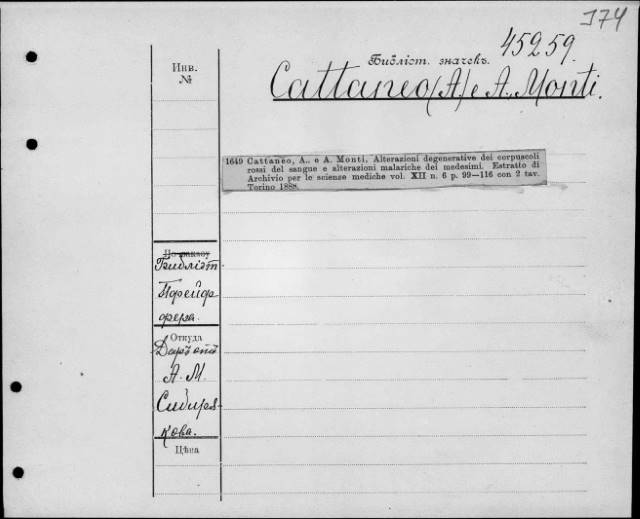 374
45259.
Библіот. значекъ.
Cattaneo (A.) e A. Monti.
Инв.
№
1649 Cattaneo, A., e A. Monti, Alterazioni degenerative dei corpuscoli
rossi del sangue e alterazioni malariche dei medesimi. Estratto di
Archivio per le scienze mediche vol. XII n. 6 p. 99—116 con 2 tav.
Torino 1888.
По какому
Библіот.
Пфейф
фера.
Откуда
Даръ отъ
А. М.
Сибиря-
кова.
Цѣна